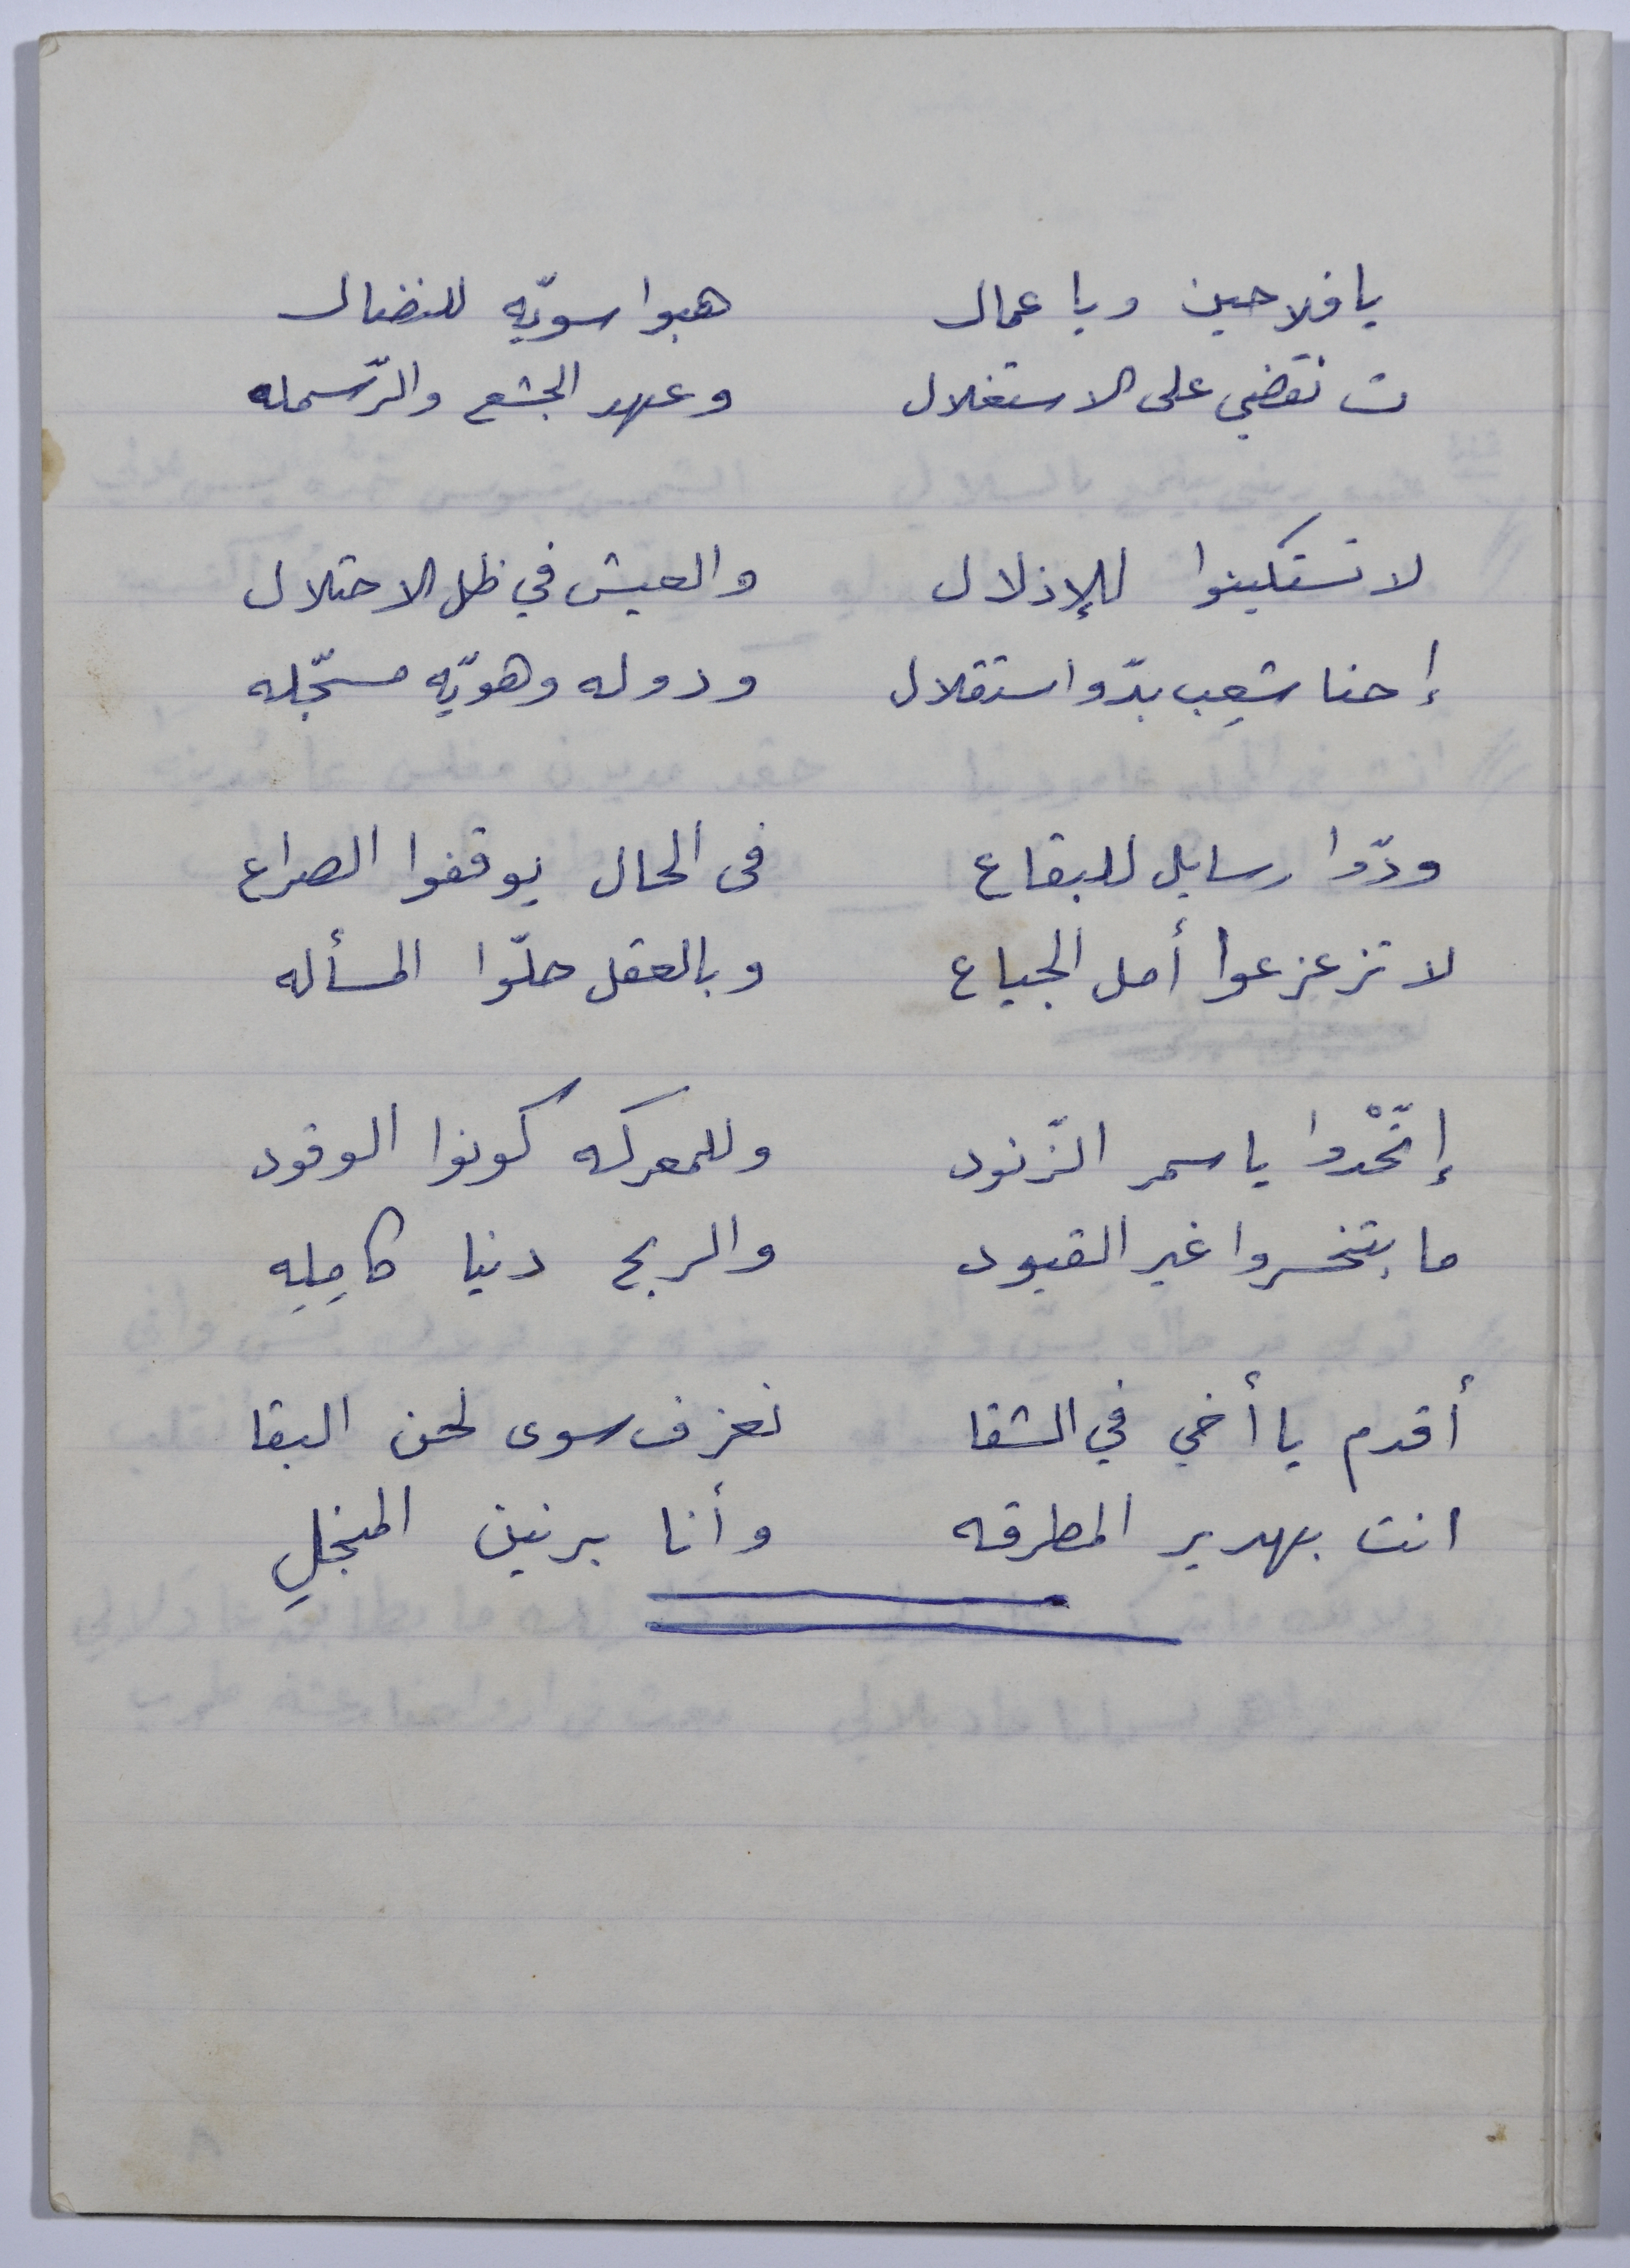 يا فلاحين ويا عمال هبوا سويّه للنضال
ت نقضي على الاستغلال وعهد الجشع والرّسمله
لا تستكينوا للإذلال والعيش في ظل الاحتلال
إحنا شعِب بدّو استقلال ودوله وهويّه مسجّله
ودّوا رسايل للبقاع في الحال يوقفوا الصراع
لا تزعزعوا أمل الجياع وبالعقل حلّوا المسأله
إتّحْدوا يا سمر الزّنود وللمعركه كونوا الوقود
ما بتخسروا غير القيود والربح دنيا كامِلِه
أقدم يا أخي في الشقا نعزف سوى لحن البقا
انت بهدير المطرقه وأنا برنين المنجلِ